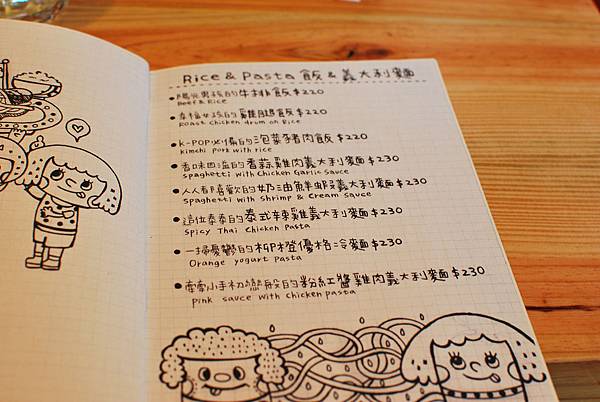 Rice & Pasta 飯 & 義大利麵
陽光男孩的牛排飯$220
Beef & Rice
幸福女孩的雞腿飯$220
Roast chicken drum on Rice
K-POP必備的泡菜豬肉飯$220
kimchi pork with rice
香味四溢的香蒜雞肉義大利麵$230
spaghetti with Chicken Garlic Sauce
人人都喜歡的奶油鮮蝦義大利麵$230
Spaghetti with Shrimp & Cream Sauce
這位泰泰的泰式辣雞義大利麵$230
Spicy Thai Chicken Pasta
一掃憂鬱的柳橙優格冷麵$230
Orange yogurt pasta
牽牽小手初戀般的粉紅醬雞肉義大利麵$230
pink sauce with chicken pasta